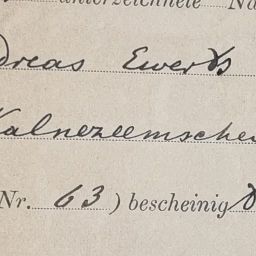 unterzeichnete Na
dreas Ewerts
Kalnezeemschen
Nr. 63) bescheinig